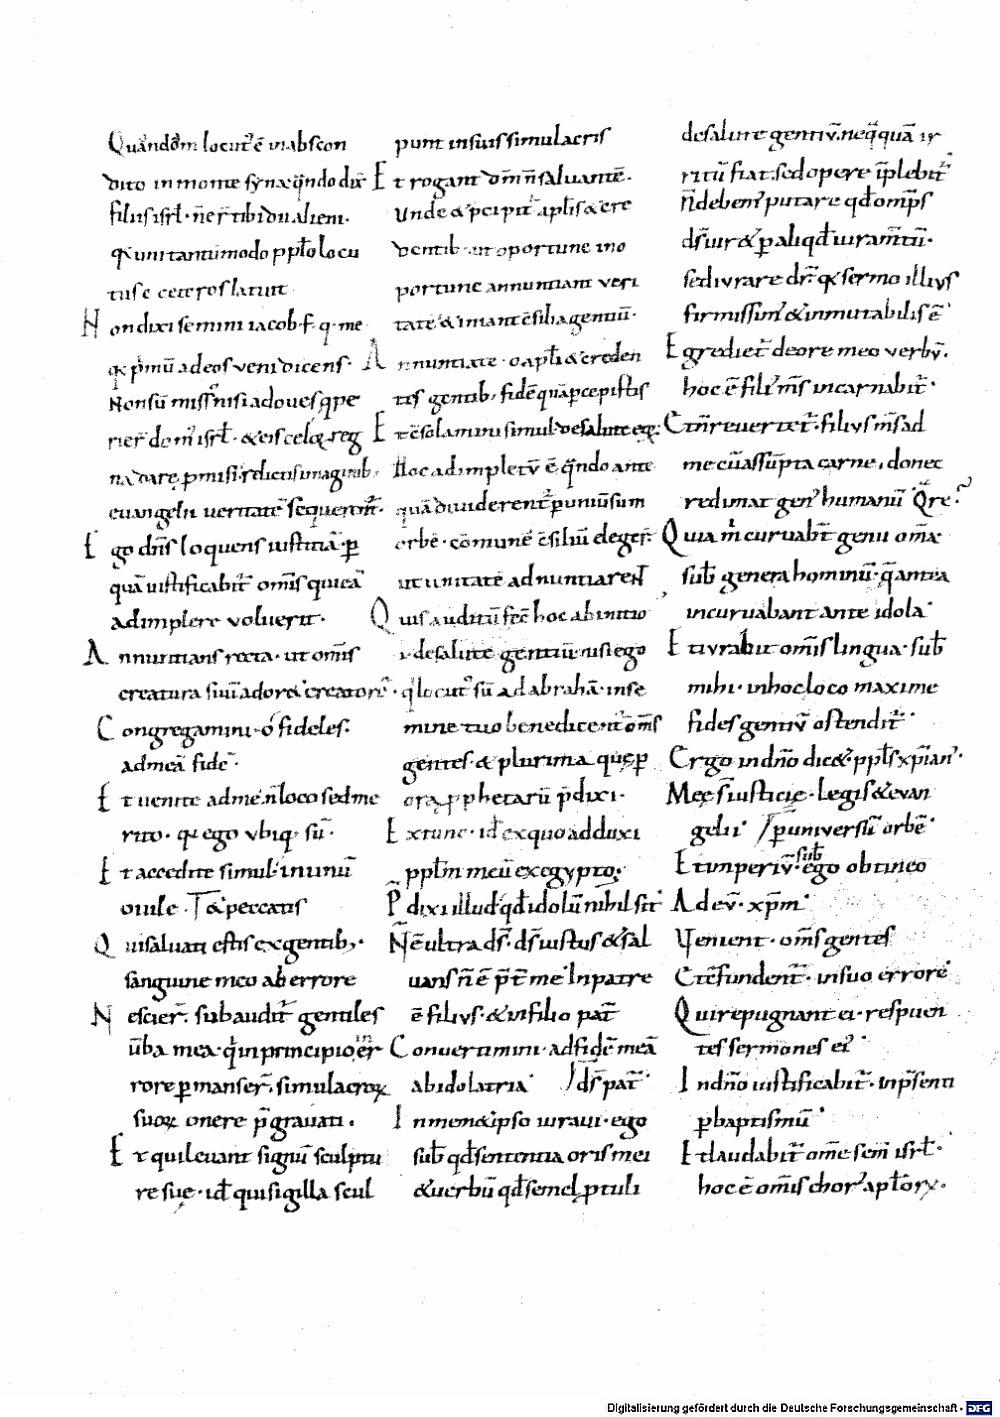 Quando dñs locut᷒ ē in abscon
dito in monte syna qñdo dix̄
filius isrł· ñ er̄ tibi d̄s alien᷒·
q̇ uni tantūmodo ppło locu
tus ē ceteros latuit
Non dixi semini iacob· f· q· me
q̇ p̄mū ad eos veni dicens·
Non sū miss᷒ nisi ad oues q̄ pe
rier̄ dom᷒ isrł· & eis celoꝝ reg
na dare ꝓmisi· r̄ dictis imaginib;
euangelii ueritatē sequent᷒·
Ego dn̄s loquens iustitiā ꝑ
quā iustificabit᷒ om̄is qui eā
adimplere voluerit·
Annuntians recta· ut om̄is
creatura suū ador& creatorē·
Congregamini· o fideles·
ad meā fidē·
Et uenite ad me· ñ loco sed me
rito· q̇ ego vbiq; sū·
Et accedite simul· in unū
ouile· & peccatis
Qui saluati estis ex gentib;·
sanguine meo ab errore
Nescier̄· subaudit᷒ gentiles
ūba mea· q̇ in principio er̄
rore ꝑmanser̄· simulacroꝝ
suoꝝ onere p̄grauati·
Et qui leuant signū sculptu
re suę· id̄ qui sigilla scul
punt in suis simulacris
Et rogant dōm ñ saluantē·
Unde & p̄cipit᷒ apłis & cre
dentib· ut oportune ino
portune annuntiant veri
tatē· & iniantē silia gentiū·
Annuntiate· o apłi & creden
tes gentib; fidē quā ꝑcepistis
Et c̄solamini simul· de salute eoꝝ·
Hoc adimpletū ē q̄ndo ante
quā diuiderent᷒ ꝑ uniūsum
orbē· cōmunē c̄siliū deger̄·
ut unitatē adnuntiarent
Quis auditū fec̄ hoc ab initio
i· de salute gentiū· nisi ego
q̇ locut᷒ sū ad abrahā· in se
mine tuo benedicent᷒ om̄s
gentes· & plurima quę ꝑ
ora ꝓphetarū p̄dixi·
Ex tunc· id̄ ex quo adduxi
ppłm meū ex egypto;
P̄dixi illud· qd̄ idolū nihil sit᷒
Nē ultra d̄s· d̄s iustus & sal
uans ñ ē p̄t̄ me· In patre
ē filius· & in filio pat̄
Conuertimini· ad fidē meā
ab idolatria· d̄s pat̄·
In mem&ipso iuraui· ego
sub qd̄ sententia oris mei
& uerbū qd̄ semel ꝓtuli
de salute gentiū· nequaquā ir
ritū fiat· sed opere īplebit᷒
Ñ debem᷒ putare qd̄ om̄ps
d̄s iur& ꝑ aliqd̄ iuram̄tū·
sed iurare dr̄· q̇ sermo illius
firmissim᷒ & inmutabilis ē·
Egrediet᷒ de ore meo verbū·
hoc ē fili᷒ m̄s incarnabit᷒·
Et ñ reuertet᷒· filius m̄s ad
me cū assūpta carne· donec
redimat gen᷒ humanū· Q̄re?
Quia m̄ curuabit̄ genu om̄e
sub genera hominū· q̄ antea
incuruabant ante idola·
Et iurabit om̄is lingua· sub
mihi· in hoc loco maxime
fides gentiū ostendit᷒·
Ergo in dn̄o dic&· ppłs xp̄ian᷒·
Meę s̄ iusticię· legis & euan
gelii· ꝑ uniuersū orbē·
Et imperiū· sub ego obtineo
Ad eū· xp̄m·
Venient· om̄s gentes
Et c̄fundent᷒· in suo errore
Qui repugnant ei· respuen
tes sermones ei᷒
In dn̄o iustificabit᷒· in p̄senti
ꝑ baptismū·
Et laudabit᷒ om̄e sem̄ isrł·
hoc ē om̄is chor᷒ apłoꝝ·